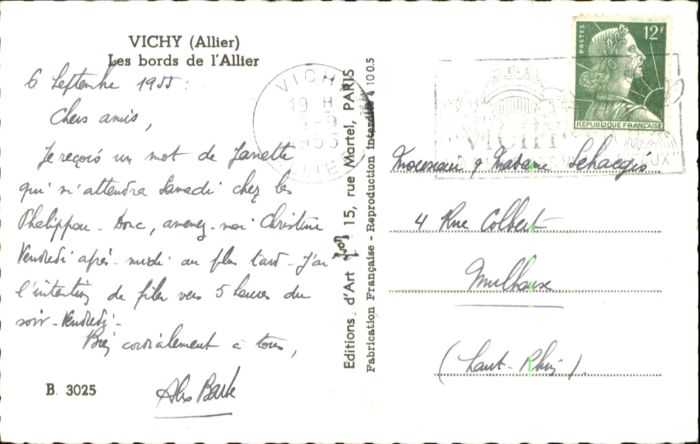 VICHY (Allier)
Les bords de l'Allier
6 Septembre 1955 :
Chers amis,
Je reçois un mot de Janette
qui m'attendra Samedi chez les
Phelippeau. Donc, amenez-moi Christine
Vendredi après-midi au plus tard. J'ai
l'intention de filer vers 5 heures du
soir - Vendredi -
Bien cordialement à tous,
B. 3025
Editions d'Art 15, rue Martel, PARIS
Fabrication Française - Reproduction Interdite 4 1005
VICHY
19 H
1955
ALLIER
VICHY
POSTES
12F
REPUBLIQUE FRANÇAISE
Monsieur & Madame
4 Rue Colbert
Mulhouse
(Haut-Rhin).